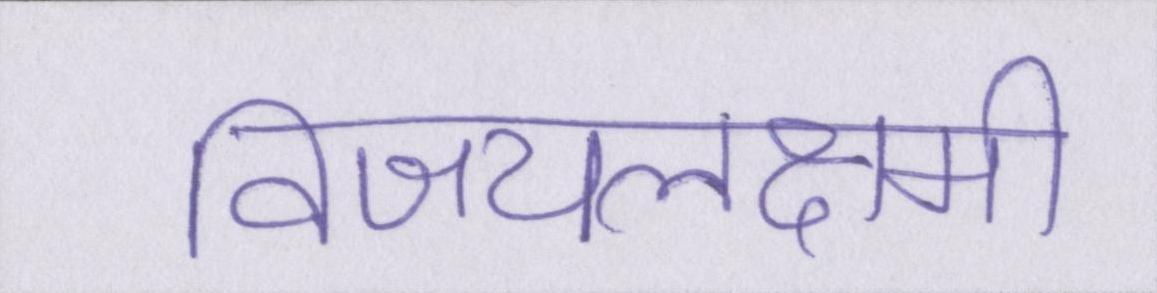 विजयलक्षमी